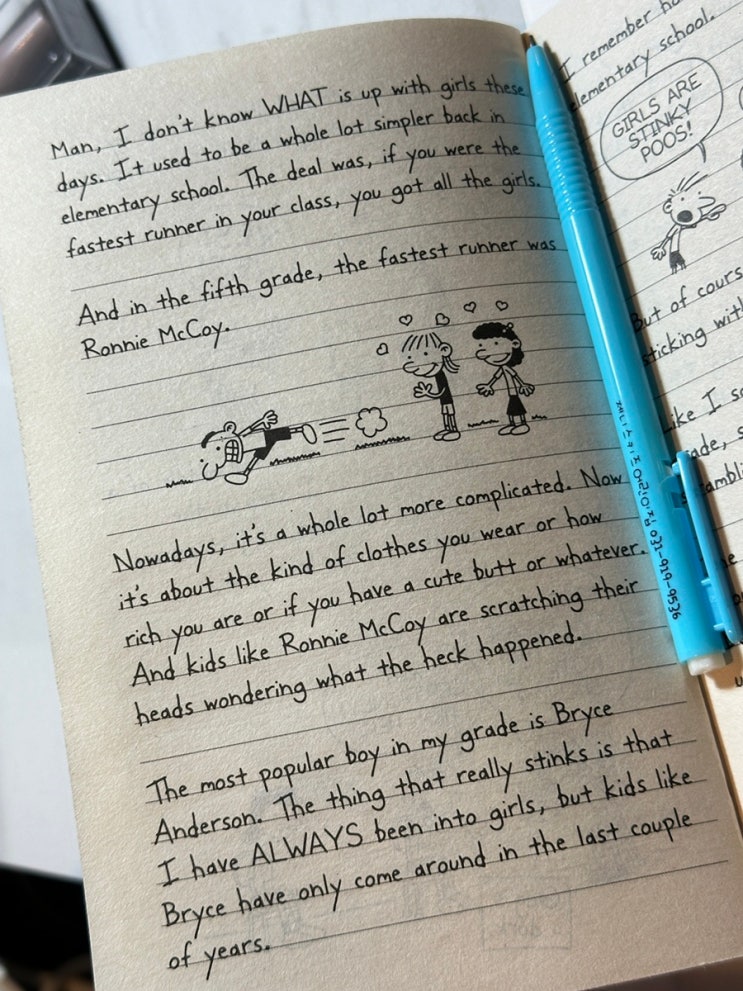 Man, I don't know WHAT is up with girls these
days. It used to be a whole lot simpler back in
elementary school. The deal was, if you were the
fastest runner in your class, you got all the girls.
And in the fifth grade, the fastest runner was
Ronnie McCoy.
Nowadays, it's a whole lot more complicated. Now
it's about the kind of clothes you wear or how
rich you are or if you have a cute butt or whatever.
And kids like Ronnie McCoy are scratching their
heads wondering what the heck happened.
The most popular boy in my grade is Bryce
Anderson. The thing that really stinks is that
I have ALWAYS been into girls, but kids like
Bryce have only come around in the last couple
of years.
I remember
elementary school.
GIRLS ARE
STINKY
POOS!
But of cours
sticking wit
ike I s
ade, s
031-919-9536